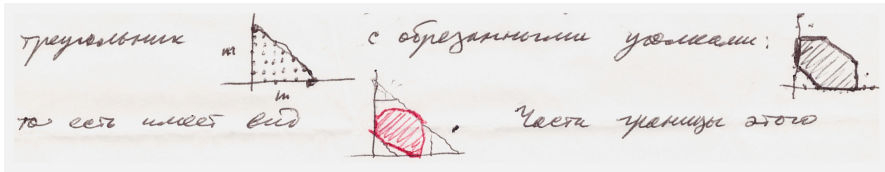 треугольник m m с обрезанными уголками:
то есть имеет вид Части границы этого